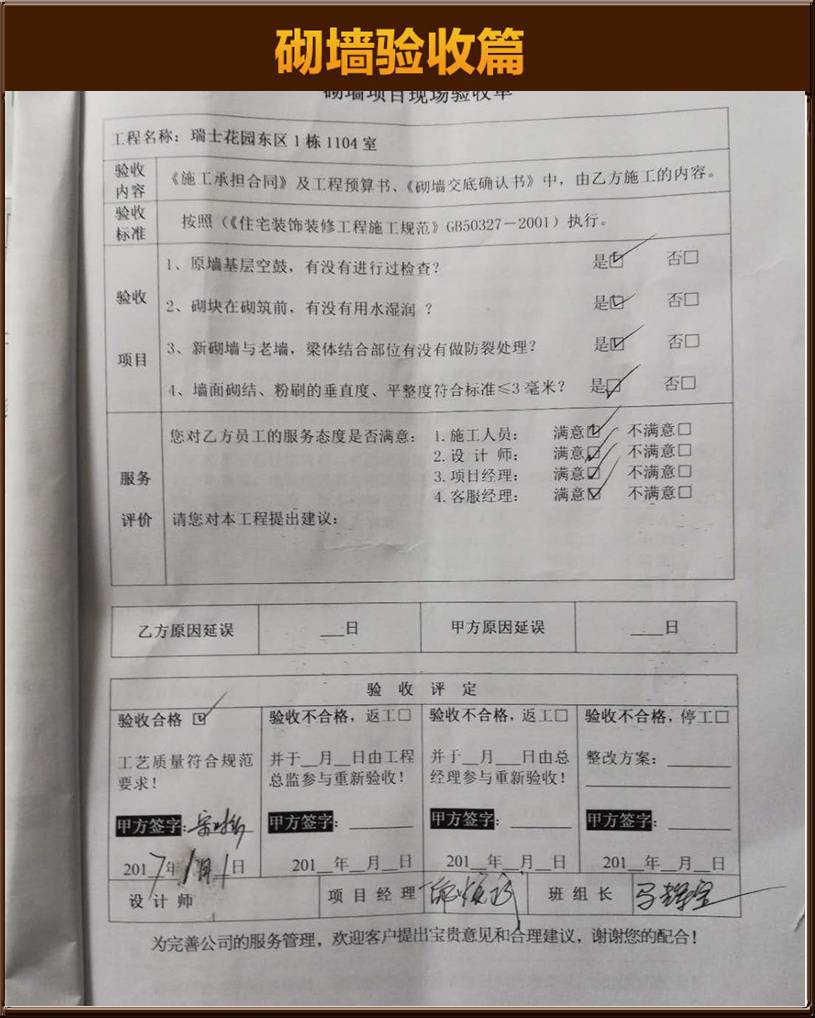 砌墙验收篇
砌墙项目现场验收单
工程名称：瑞士花园东区1栋1104室
验收内容
《施工承担合同》及工程预算书、《砌墙交底确认书》中，由乙方施工的内容。
验收标准
按照（《住宅装饰装修工程施工规范》GB50327－2001）执行。
验收项目
1、原墙基层空鼓，有没有进行过检查？ 是☑ 否□
2、砌块在砌筑前，有没有用水湿润？ 是☑ 否□
3、新砌墙与老墙，梁体结合部位有没有做防裂处理？ 是☑ 否□
4、墙面砌结、粉刷的垂直度、平整度符合标准≤3毫米？ 是☑ 否□
服务评价
您对乙方员工的服务态度是否满意：
1.施工人员： 满意☑ 不满意□
2.设计师： 满意☑ 不满意□
3.项目经理： 满意☑ 不满意□
4.客服经理： 满意☑ 不满意□
请您对本工程提出建议：
乙方原因延误 ___日 甲方原因延误 ____日
验收评定
验收合格 ☑ 验收不合格，返工□ 验收不合格，返工□ 验收不合格，停工□
工艺质量符合规范 并于__月__日由工程 并于__月__日由总 整改方案：______
要求！ 总监参与重新验收！ 经理参与重新验收！
甲方签字： 甲方签字：______ 甲方签字：______ 甲方签字：______
2017年1月1日 201__年__月__日 201__年__月__日 201__年__月__日
设计师 项目经理 班组长
为完善公司的服务管理，欢迎客户提出宝贵意见和合理建议，谢谢您的配合！